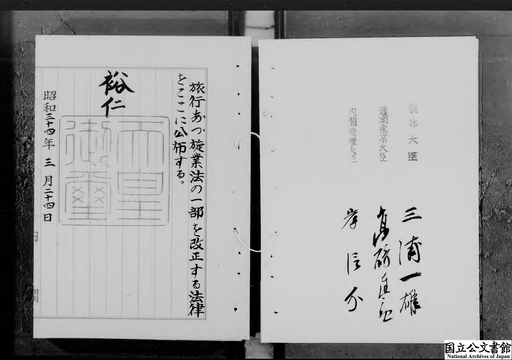 旅行あつ旋業法の一部を改正する法律
をここに公布する。
裕仁
天皇
御璽
昭和三十四年三月二十四日
大臣
運輸大臣
内閣総理大臣
三浦一雄
岸信介
国立公文書館
National Archives of Japan